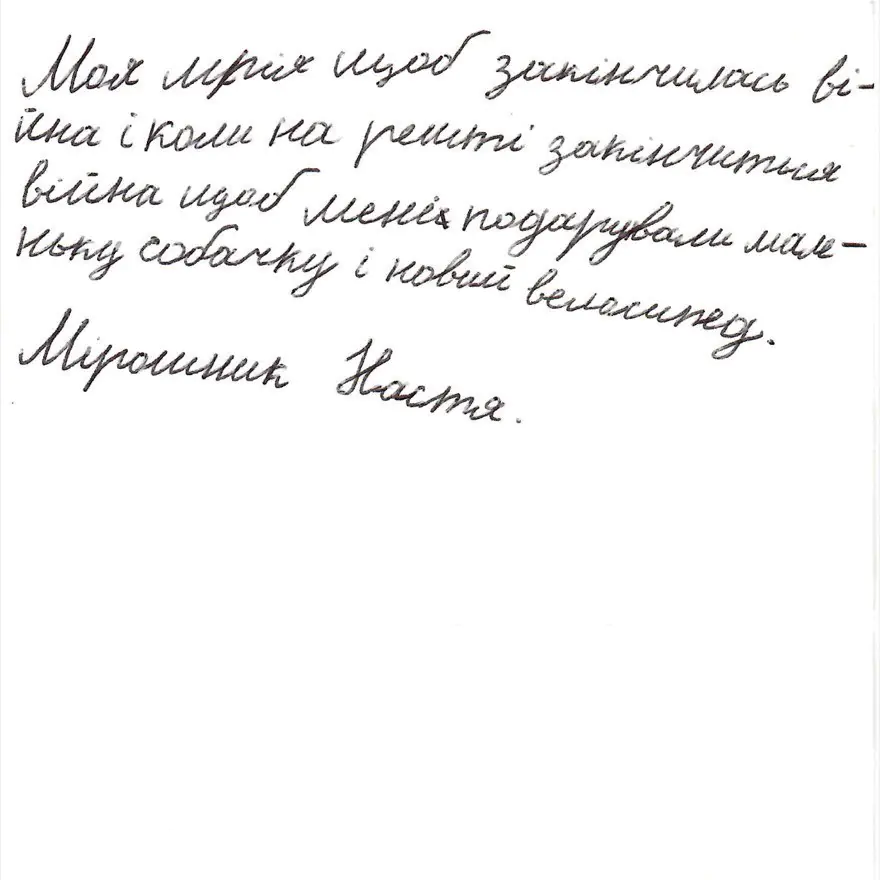 Моя мрія щоб закінчилась ві-
йна і коли на решті закінчиться
війна щоб мені подарували мале-
ньку собачку і новий велосипед.
Мірошник Настя.